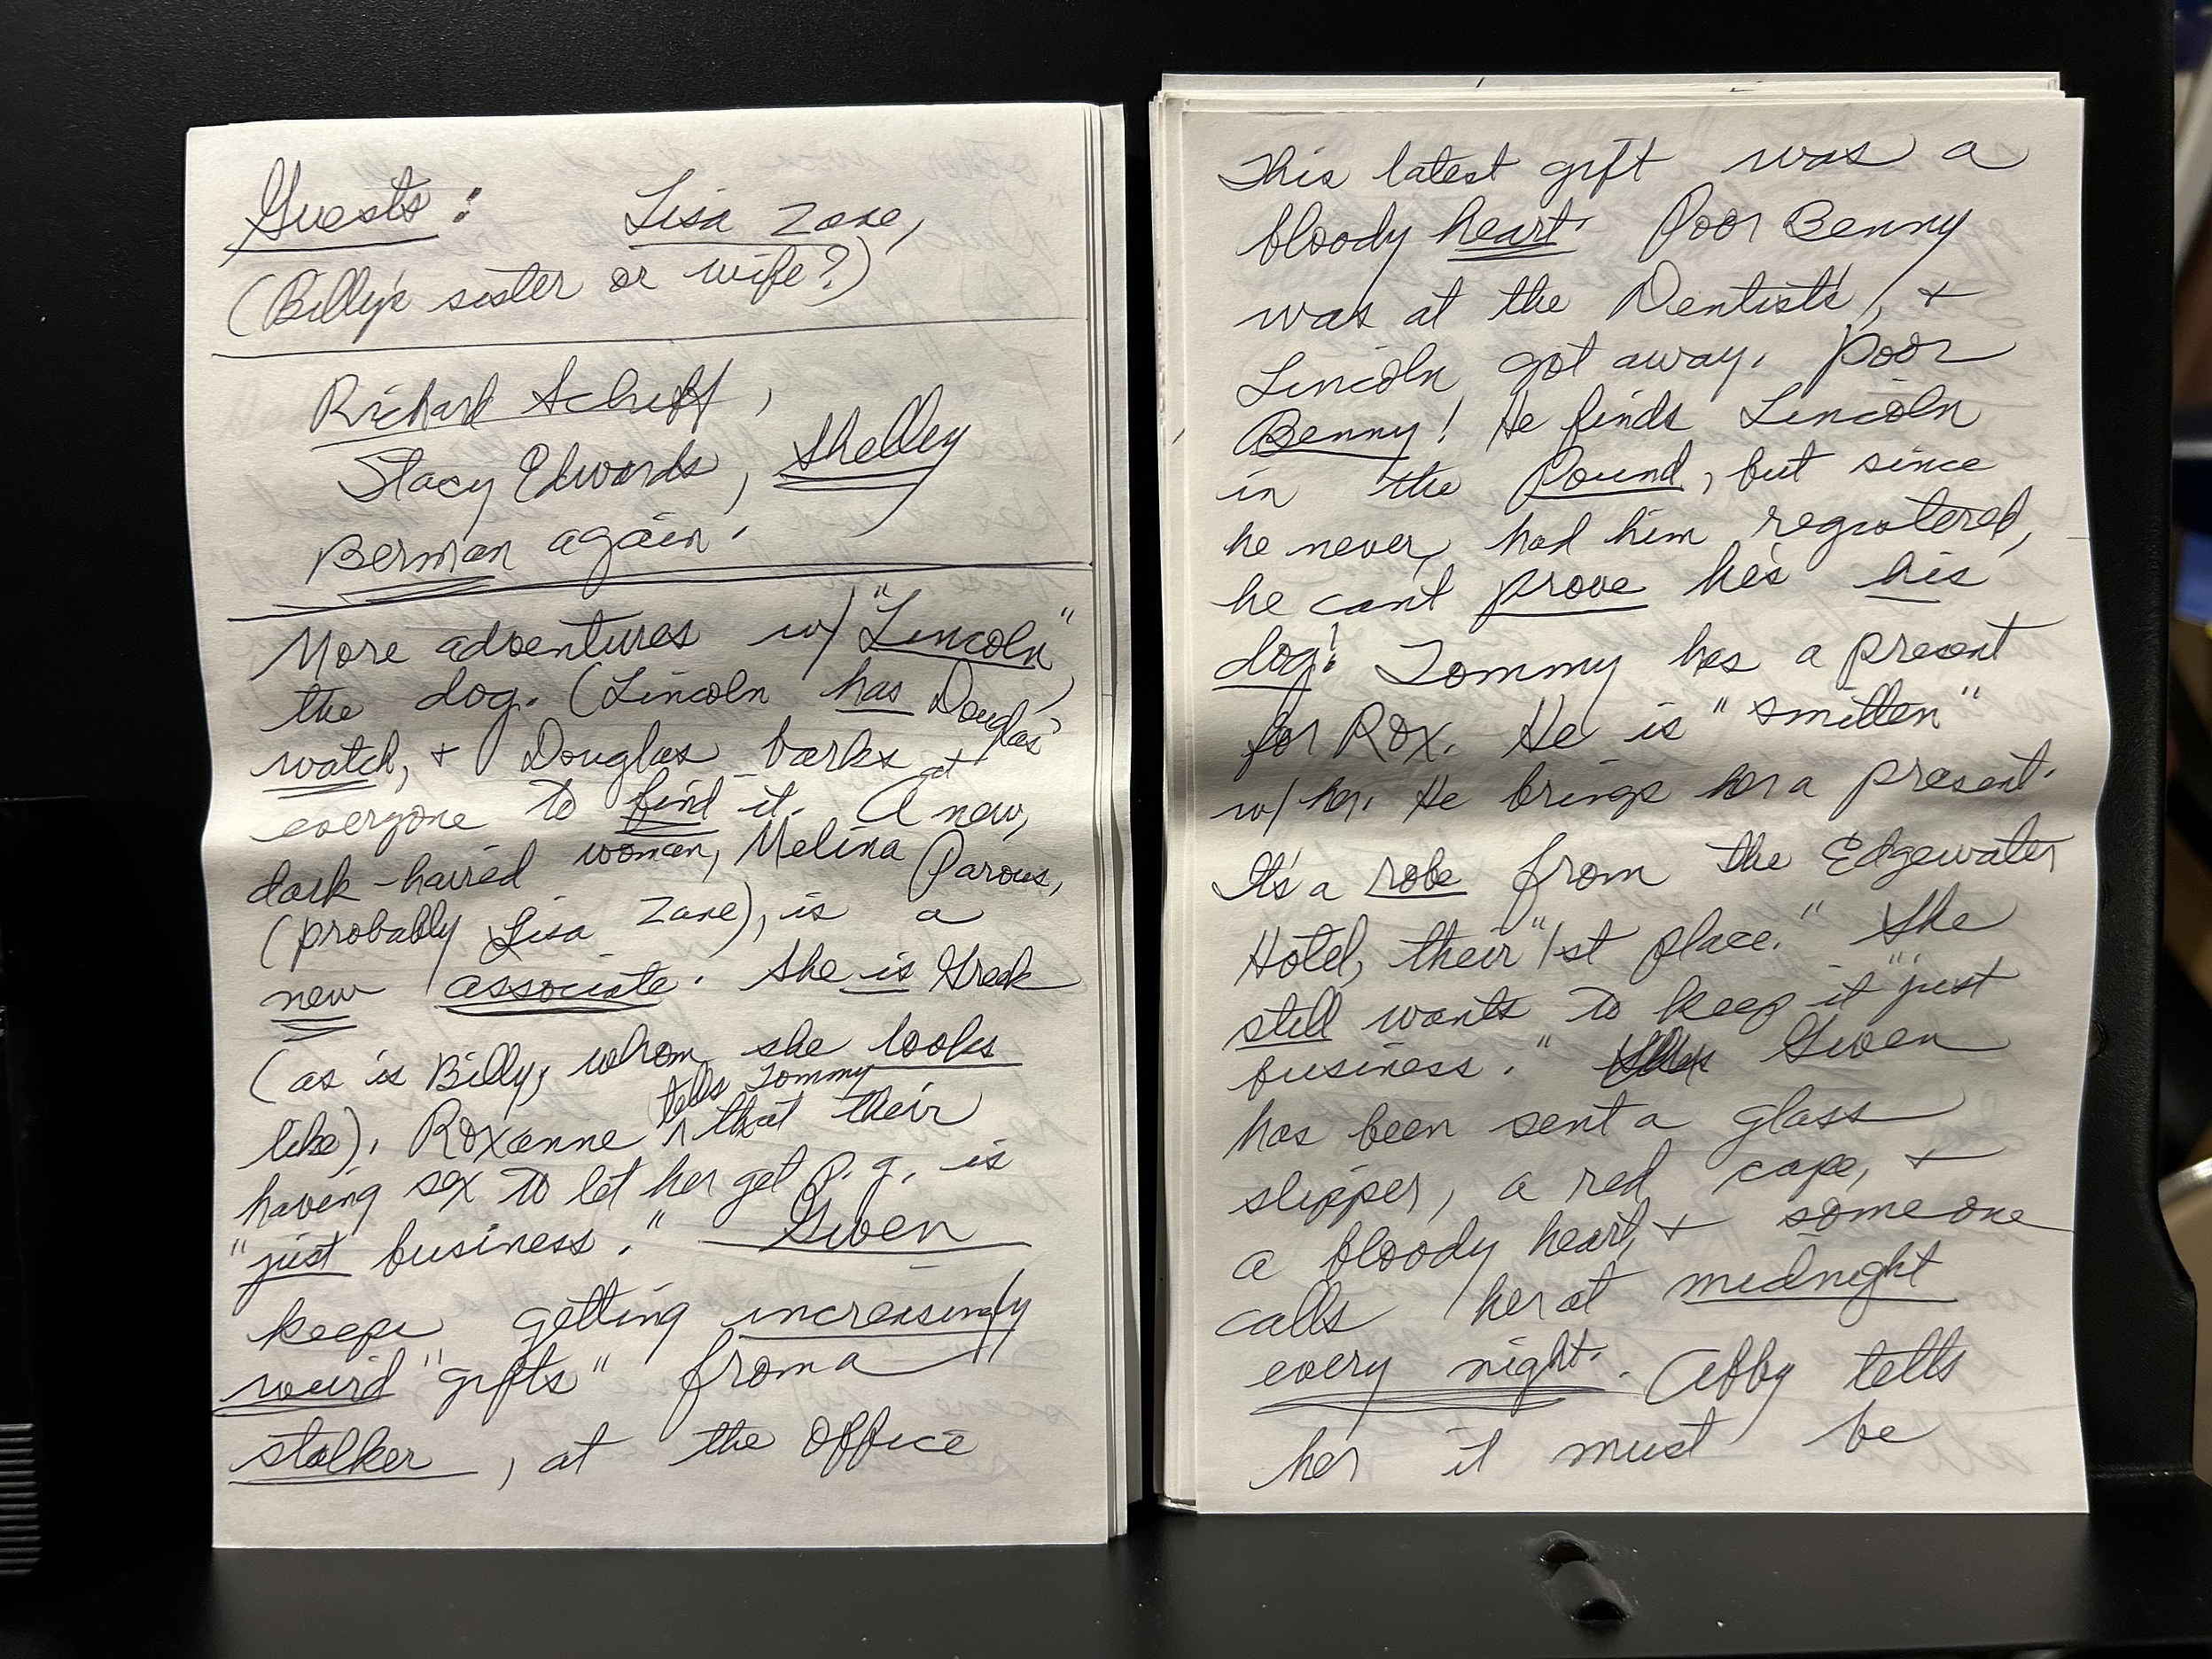 Guests: Lisa Zane,
(Billy's sister or wife?)
Richard Schiff,
Stacy Edwards, Shelley
Berman again.
More adventures w/ "Lincoln"
the dog. (Lincoln has Douglas'
watch, + Douglas barks at
everyone to find it. A new,
dark-haired woman, Melina Parous,
(probably Lisa Zane), is a
new associate. She is Greek
(as is Billy, whom she looks
like). Roxanne tells Tommy that their
having sex to let her get P.g. is
"just business." Gwen
keeps getting increasingly
weird "gifts" from a
stalker, at the office
This latest gift was a
bloody heart. Poor Benny
was at the Dentist's, +
Lincoln got away. Poor
Benny! He finds Lincoln
in the Pound, but since
he never had him registered,
he can't prove he's his
dog! Tommy has a present
for Rox. He is "smitten"
w/ her. He brings her a present.
It's a robe from the Edgewater
Hotel, their "1st place." She
still wants to keep it "just
business." Gwen
has been sent a glass
slipper, a red cape, +
a bloody heart, + someone
calls her at midnight
every night. Abby tells
her it must be